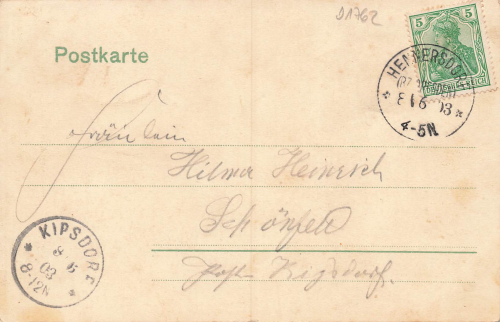 D1762
Postkarte
5 5
DEUTSCHES REICH
HENNERSDORF
(BZ. DRESDEN)
8 6 03
4-5N
Fräulein
Hilma Heinrich
Schönfeld
Post Kipsdorf.
KIPSDORF
8 6
03
8-12N